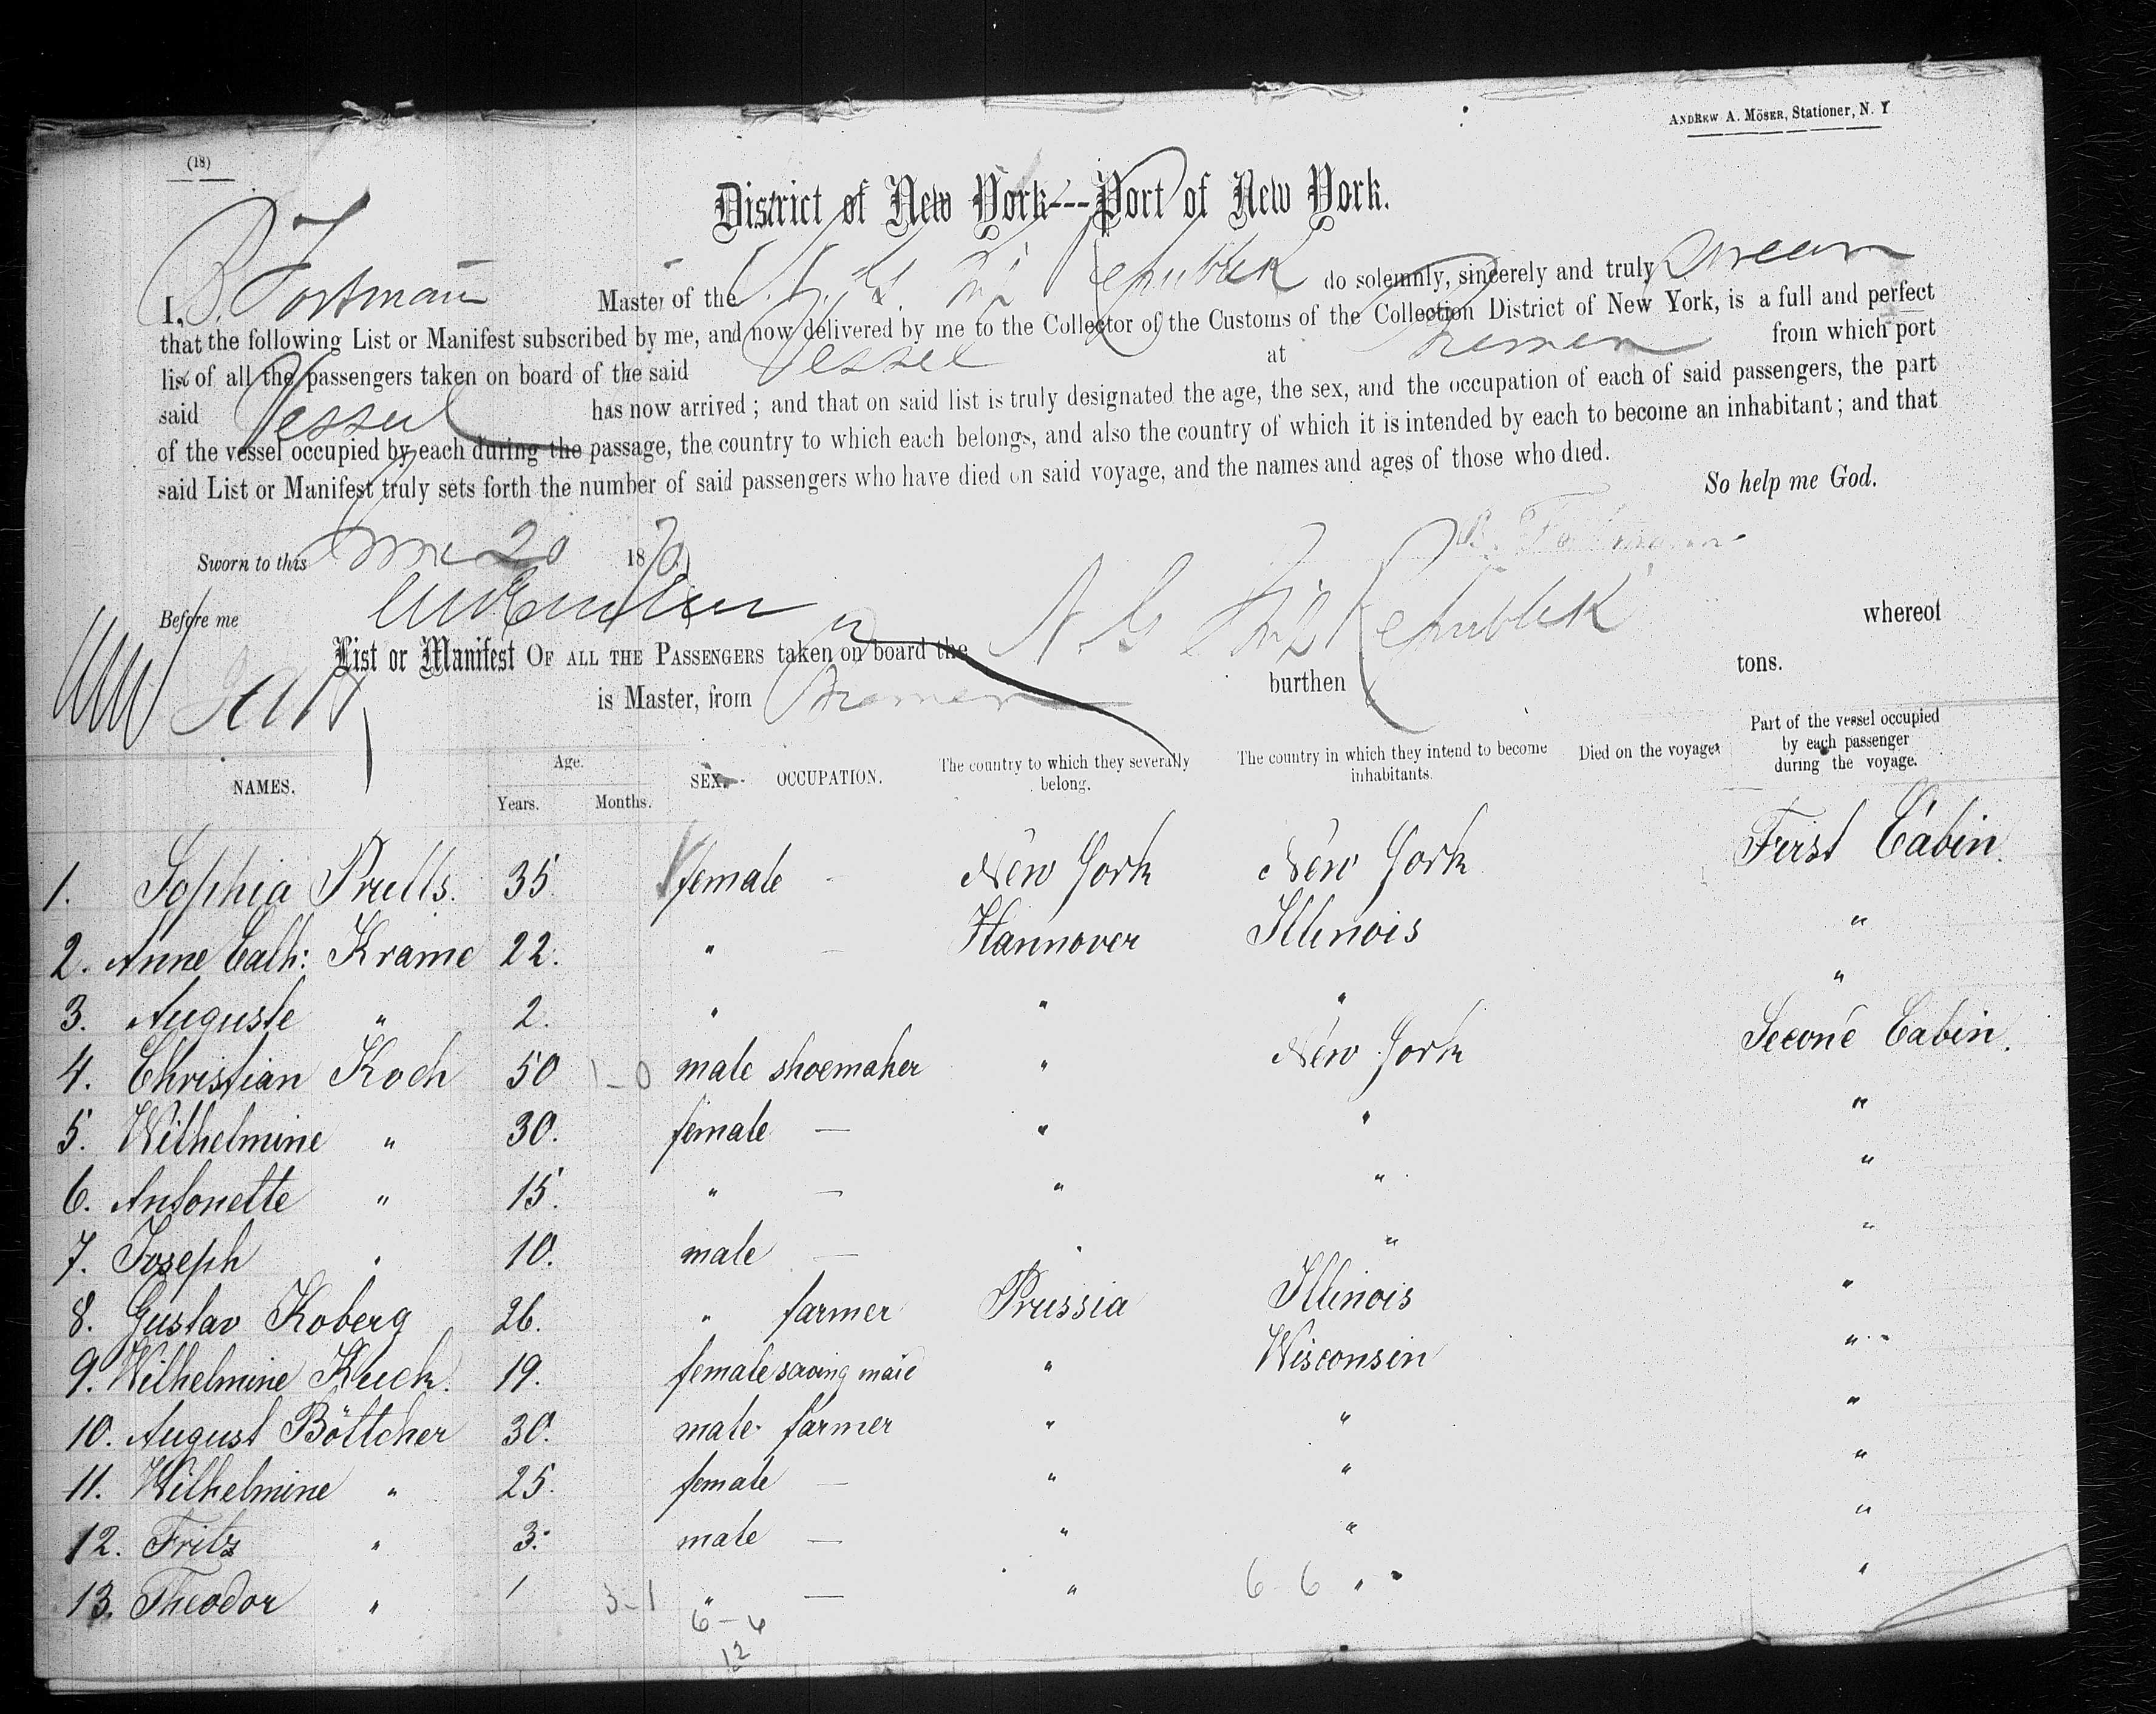 ANDREW A. MÖSER, Stationer, N. Y
(18)
District of New York---Port of New York.
I, B. Fortmann Master of the Republik do solemnly, sincerely and truly swear
that the following List or Manifest subscribed by me, and now delivered by me to the Collector of the Customs of the Collection District of New York, is a full and perfect
list of all the passengers taken on board of the said Vessel at Bremen from which port
said Vessel has now arrived; and that on said list is truly designated the age, the sex, and the occupation of each of said passengers, the part
of the vessel occupied by each during the passage, the country to which each belongs, and also the country of which it is intended by each to become an inhabitant; and that
said List or Manifest truly sets forth the number of said passengers who have died on said voyage, and the names and ages of those who died.
So help me God.
Sworn to this June 20 1870 B. Fortmann
Before me
List or Manifest OF ALL THE PASSENGERS taken on board the N G Republik whereof
is Master, from Bremen burthen tons.
NAMES. Age. Years. Months. SEX. OCCUPATION. The country to which they severally belong. The country in which they intend to become inhabitants. Died on the voyage. Part of the vessel occupied by each passenger during the voyage.
1. Sophia Prulls. 35. female - New York New York First Cabin.
2. Anne Cath: Krame 22. " - Hannover Illinois "
3. Auguste " 2. " " " "
4. Christian Koch 50 1-0 male shoemaker " New York Second Cabin.
5. Wilhelmine " 30. female — " " "
6. Antonette " 15. " — " " "
7. Joseph " 10. male — " " "
8. Gustav Koberg 26. " farmer Prussia Illinois "
9. Wilhelmine Kuck. 19. female serving maid " Wisconsin "
10. August Böttcher 30. male farmer " " "
11. Wilhelmine " 25. female — " " "
12. Fritz " 3. male — " " "
13. Theodor " 1 3-1 " — " 6-6 " "
6-6
12